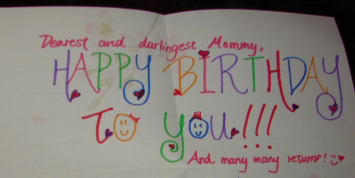 Dearest and darlingest Mommy,
HAPPY BIRTHDAY
TO you!!!
And many many returns!